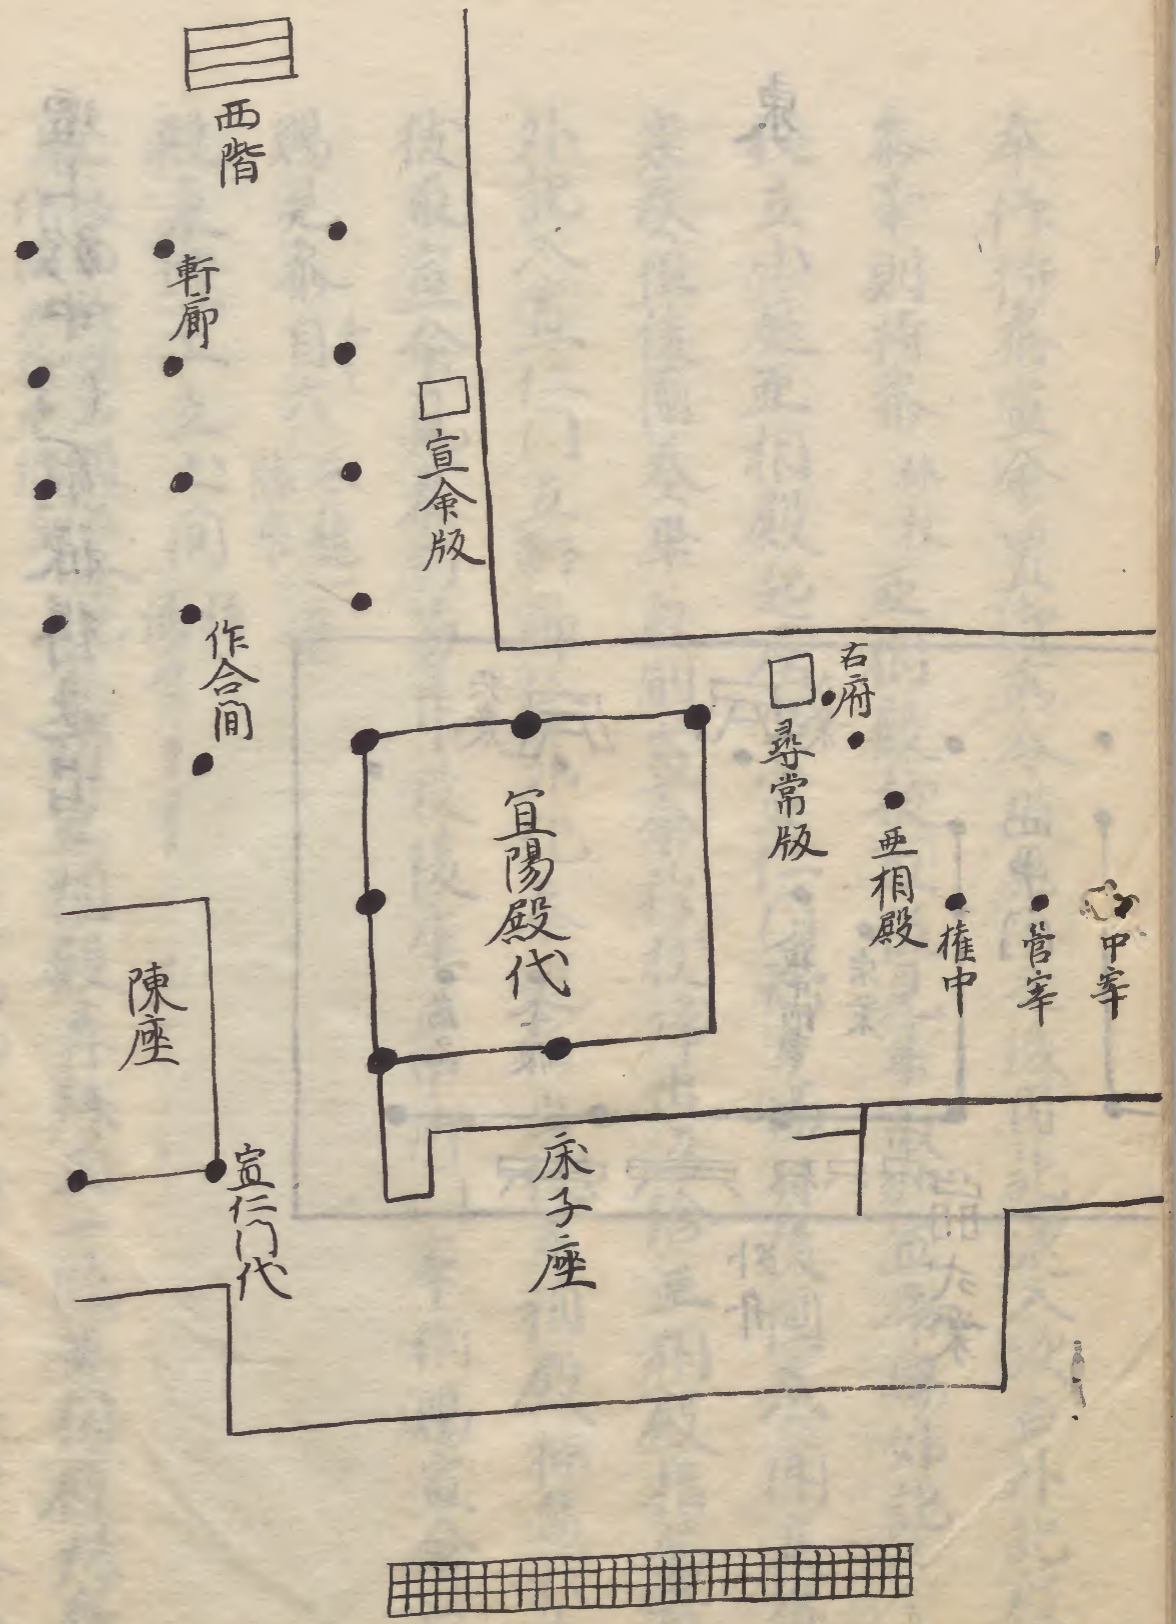 西階
軒廊
宣命版
作合間
右府
尋常版
亜相殿
権中
菅宰
中宰
宜陽殿代
陳座
宣仁門代
床子座